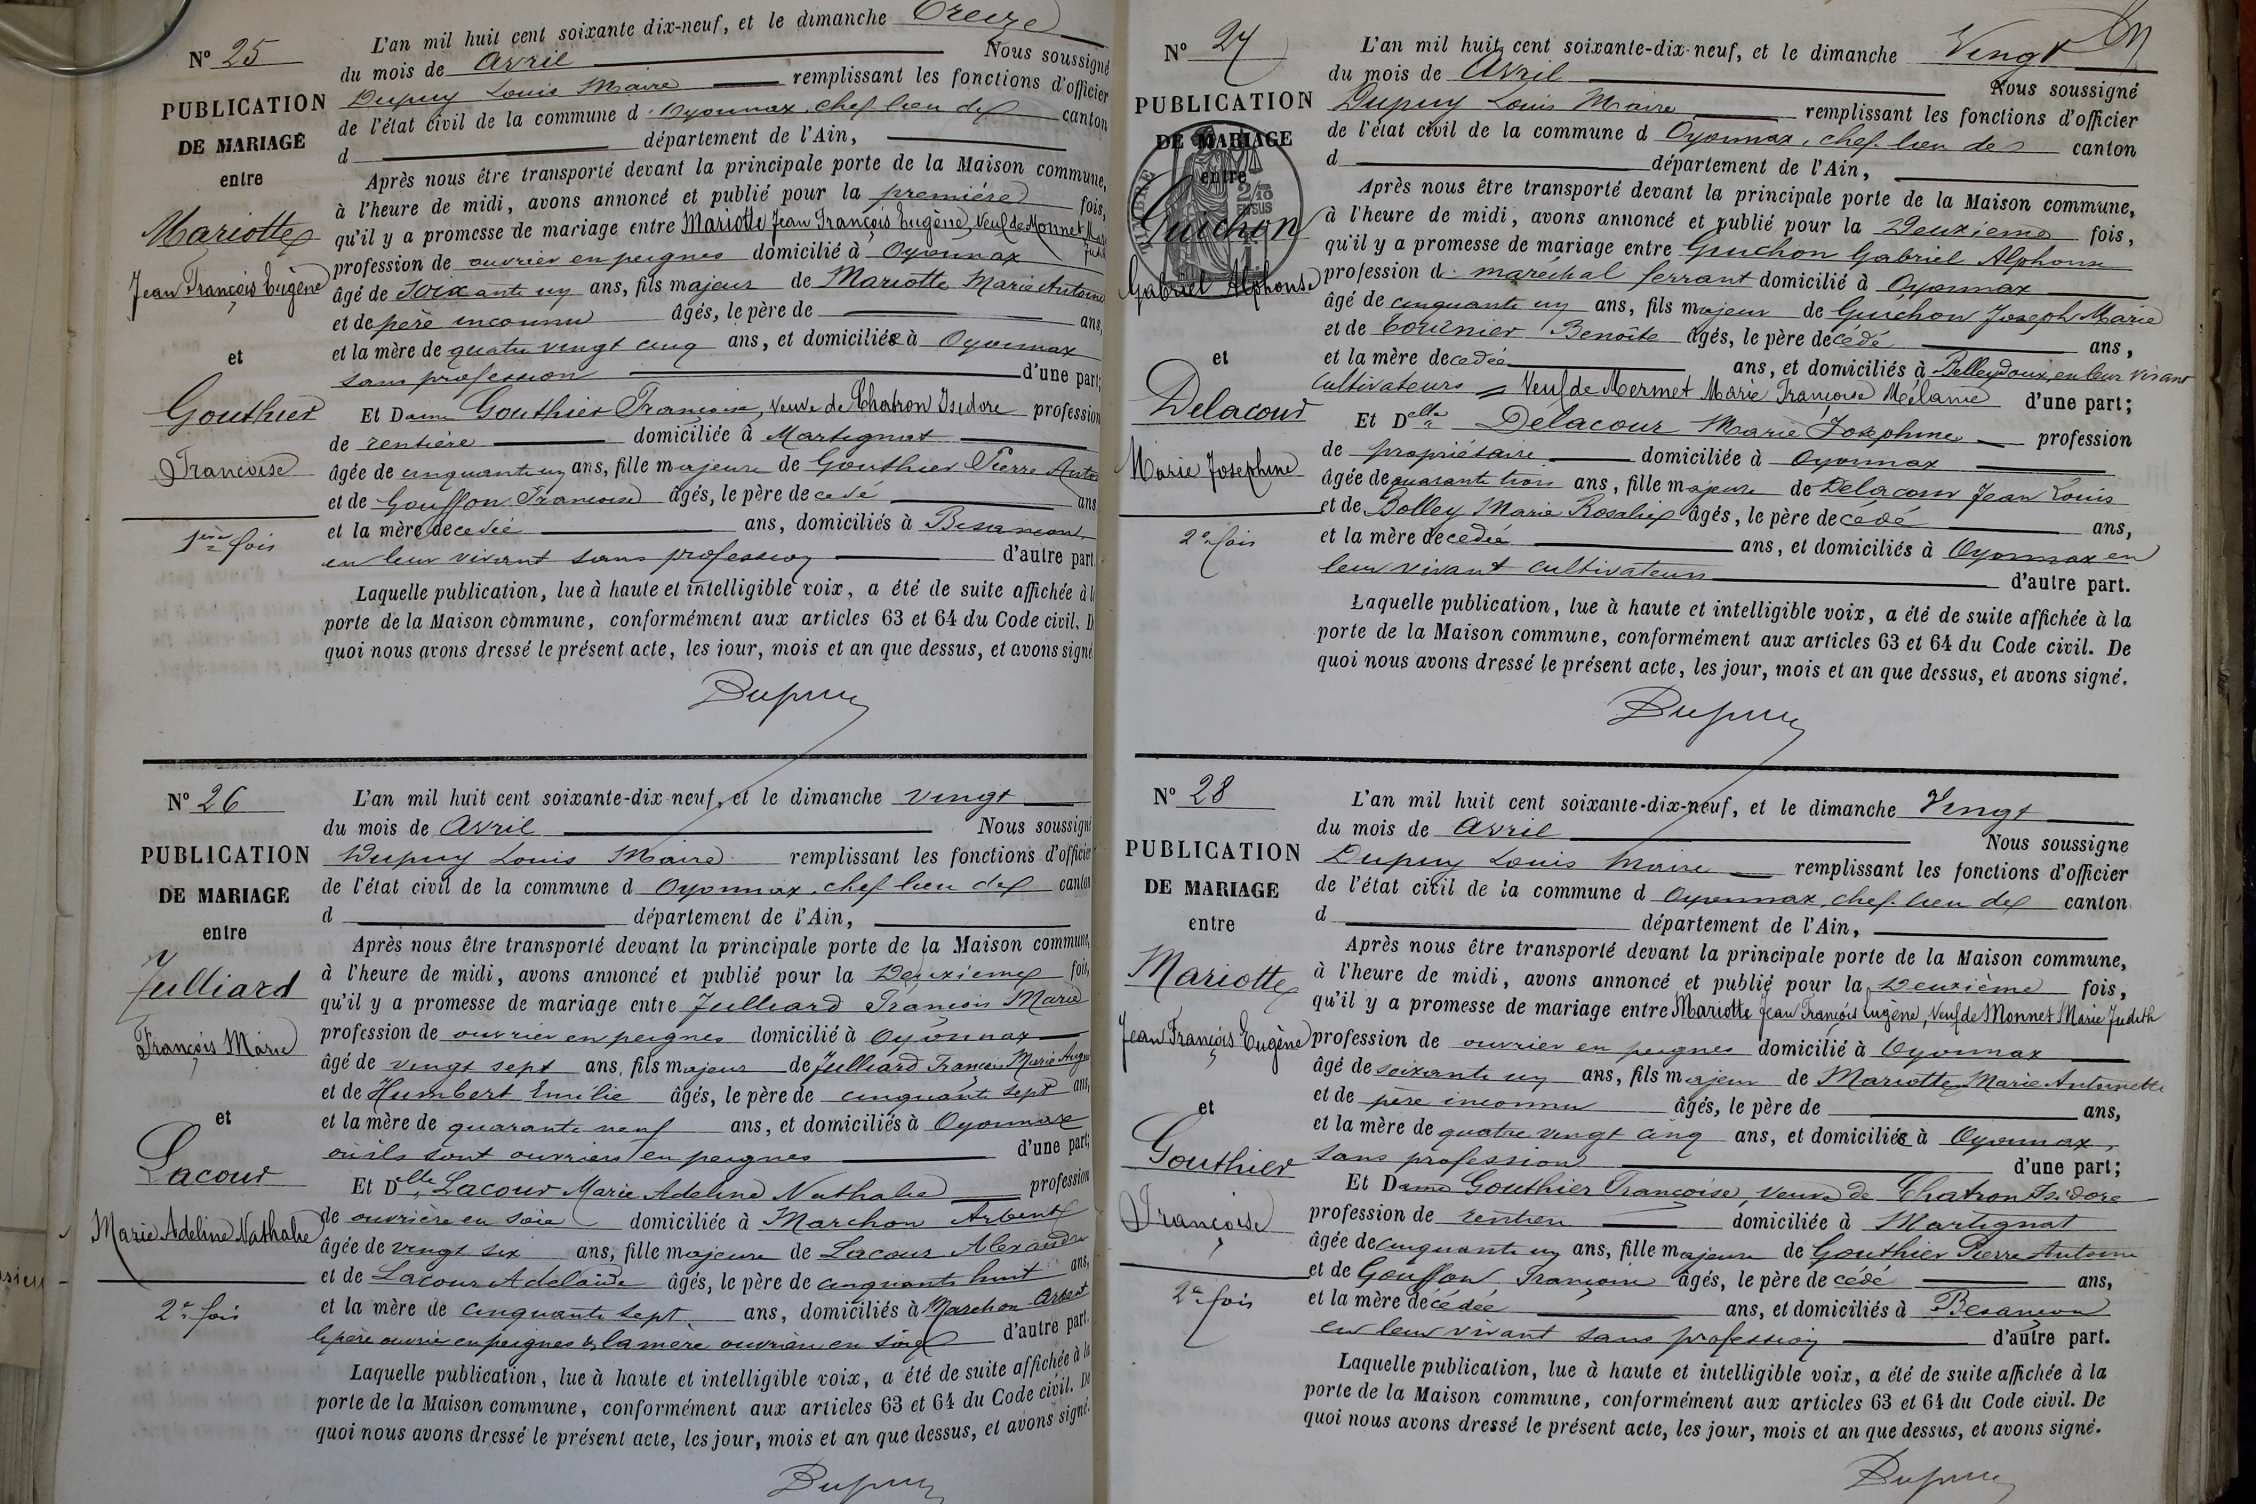 L'an mil huit cent soixante dix-neuf, et le dimanche Treize
N° 25
du mois de Avril Nous soussigné
Dupuy Louis Maire remplissant les fonctions d'officier
PUBLICATION
de l'état civil de la commune d Oyonnax, chef lieu de canton
DE MARIAGE
d département de l'Ain,
entre
Après nous être transporté devant la principale porte de la Maison commune,
à l'heure de midi, avons annoncé et publié pour la première fois,
Mariotte
qu'il y a promesse de mariage entre Mariotte Jean François Eugène, Veuf de Monnet Marie
Judith
profession de ouvrier en peignes domicilié à Oyonnax
Jean François Eugène
âgé de Soixante un ans, fils majeur de Mariotte Marie Antoinette
et de père inconnu âgés, le père de ans,
et
et la mère de quatre vingt cinq ans, et domiciliés à Oyonnax
sans profession d'une part;
Gouthier
Et Dame Gouthier Françoise, Veuve de Chatron Isidore profession
de rentière domiciliée à Martignat
Françoise
âgée de cinquante un ans, fille majeure de Gouthier Pierre Antoine
et de Gouffon Francoise âgés, le père decedé ans
1ère fois
et la mère decedée ans, domiciliés à Besançon
en leur vivant sans profession d'autre part
Laquelle publication, lue à haute et intelligible voix, a été de suite affichée à l
porte de la Maison commune, conformément aux articles 63 et 64 du Code civil. D
quoi nous avons dressé le présent acte, les jour, mois et an que dessus, et avons signé
Dupuy
N° 26
L'an mil huit cent soixante-dix-neuf, et le dimanche vingt
du mois de Avril Nous soussigné
PUBLICATION
Dupuy Louis Maire remplissant les fonctions d'officier
DE MARIAGE
de l'état civil de la commune d Oyonnax, chef lieu de canton
d département de l'Ain,
entre
Après nous être transporté devant la principale porte de la Maison commune,
à l'heure de midi, avons annoncé et publié pour la Deuxième fois,
Julliard
qu'il y a promesse de mariage entre Julliard François Marie
profession de ouvrier en peignes domicilié à Oyonnax
François Marie
âgé de vingt sept ans, fils majeur de Julliard François Marie
et de Humbert Emilie âgés, le père de cinquante sept ans,
et
et la mère de quarante neuf ans, et domiciliés à Oyonnax
où ils sont ouvriers en peignes d'une part;
Lacour
Et Delle Lacour Marie Adeline Nathalie profession
de ouvrière en soie domiciliée à Marchon Arbent
Marie Adeline Nathalie
âgée de vingt six ans, fille majeure de Lacour Alexandre
et de Lacour Adelaïde âgés, le père de cinquante huit ans,
2e fois
et la mère de cinquante sept ans, domiciliés à Marchon Arbent
le père ouvrier en peignes & la mère ouvrière en soie d'autre part.
Laquelle publication, lue à haute et intelligible voix, a été de suite affichée à la
porte de la Maison commune, conformément aux articles 63 et 64 du Code civil. De
quoi nous avons dressé le présent acte, les jour, mois et an que dessus, et avons signé.
Dupuy
N° 27
L'an mil huit cent soixante-dix-neuf, et le dimanche Vingt
du mois de Avril Nous soussigné
PUBLICATION
Dupuy Louis Maire remplissant les fonctions d'officier
DE MARIAGE
de l'état civil de la commune d Oyonnax, chef lieu de canton
d département de l'Ain,
entre
Après nous être transporté devant la principale porte de la Maison commune,
Guichon
à l'heure de midi, avons annoncé et publié pour la Deuxième fois,
qu'il y a promesse de mariage entre Guichon Gabriel Alphonse
Gabriel Alphonse
profession d maréchal ferrant domicilié à Oyonnax
âgé de cinquante un ans, fils majeur de Guichon Joseph Marie
et de Tournier Benoîte âgés, le père décédé ans,
et
et la mère decedée ans, et domiciliés à Belleydoux, en leur vivant
cultivateurs = Veuf de Mermet Marie Françoise Mélanie d'une part;
Delacour
Et Delle Délacour Marie Josephine profession
de propriétaire domiciliée à Oyonnax
Marie Josephine
âgée de quarante trois ans, fille majeure de Delacour Jean Louis
et de Bolley Marie Rosalie âgés, le père décédé ans,
2e fois
et la mère decedée ans, et domiciliés à Oyonnax en
leur vivant cultivateurs d'autre part.
Laquelle publication, lue à haute et intelligible voix, a été de suite affichée à la
porte de la Maison commune, conformément aux articles 63 et 64 du Code civil. De
quoi nous avons dressé le présent acte, les jour, mois et an que dessus, et avons signé.
Dupuy
N° 28
L'an mil huit cent soixante-dix-neuf, et le dimanche Vingt
du mois de Avril Nous soussigne
PUBLICATION
Dupuy Louis Maire remplissant les fonctions d'officier
DE MARIAGE
de l'état civil de la commune d Oyonnax, chef lieu de canton
d département de l'Ain,
entre
Après nous être transporté devant la principale porte de la Maison commune,
Mariotte
à l'heure de midi, avons annoncé et publié pour la Deuxième fois,
qu'il y a promesse de mariage entre Mariotte Jean François Eugène, Veuf de Monnet Marie Judith
Jean François Eugène
profession de ouvrier en peignes domicilié à Oyonnax
âgé de soixante un ans, fils majeur de Mariotte Marie Antoinette
et
et de père inconnu âgés, le père de ans,
et la mère de quatre vingt cinq ans, et domiciliés à Oyonnax,
Gouthier
sans profession d'une part;
Et Dame Gouthier Françoise, Veuve de Chatron Isidore
Françoise
profession de rentière domiciliée à Martignat
âgée de cinquante un ans, fille majeure de Gouthier Pierre Antoine
et de Gouffon Françoise âgés, le père de cédé ans,
2e fois
et la mère décédée ans, et domiciliés à Besançon
en leur vivant sans profession d'autre part.
Laquelle publication, lue à haute et intelligible voix, a été de suite affichée à la
porte de la Maison commune, conformément aux articles 63 et 64 du Code civil. De
quoi nous avons dressé le présent acte, les jour, mois et an que dessus, et avons signé.
Dupuy